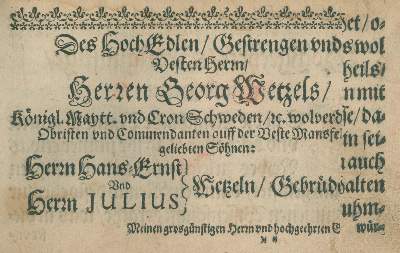 Des HochEdlen / Gestrengen vnd
Vesten Herrn /
Herren Georg Wetzels /
Königl. Maytt. vnd Cron Schweden / ꝛc. wol
Obristen vnd Commendanten auff der Veste Mansfe
geliebten Söhnen:
Herrn Hans-Ernst
Vnd
Herrn JULIUS
Wetzeln / Gebrüd
Meinen grosgünstigen Herrn vnd hochgeehrten
et / o-
s wol
heils /
n mit
verdse / da-
in sei-
auch
alten
uhm-
wür-